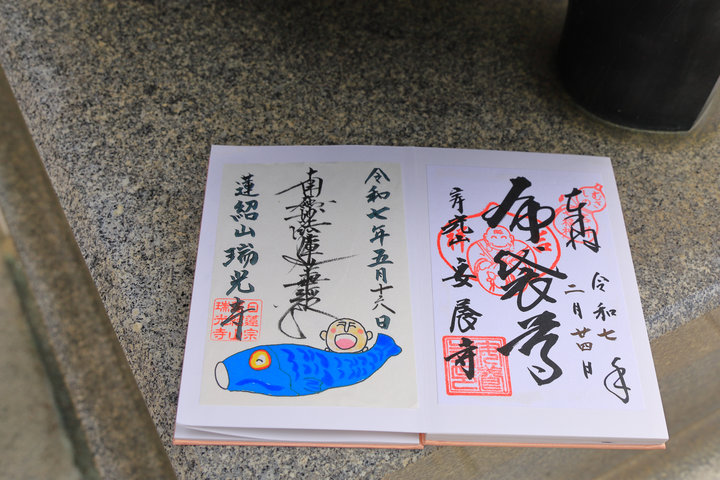 奉拝
令和七年
二月廿四日
布袋尊
安養寺
令和七年五月十六日
南無妙法蓮華経
蓮紹山 瑞光寺
日蓮宗
瑞光寺